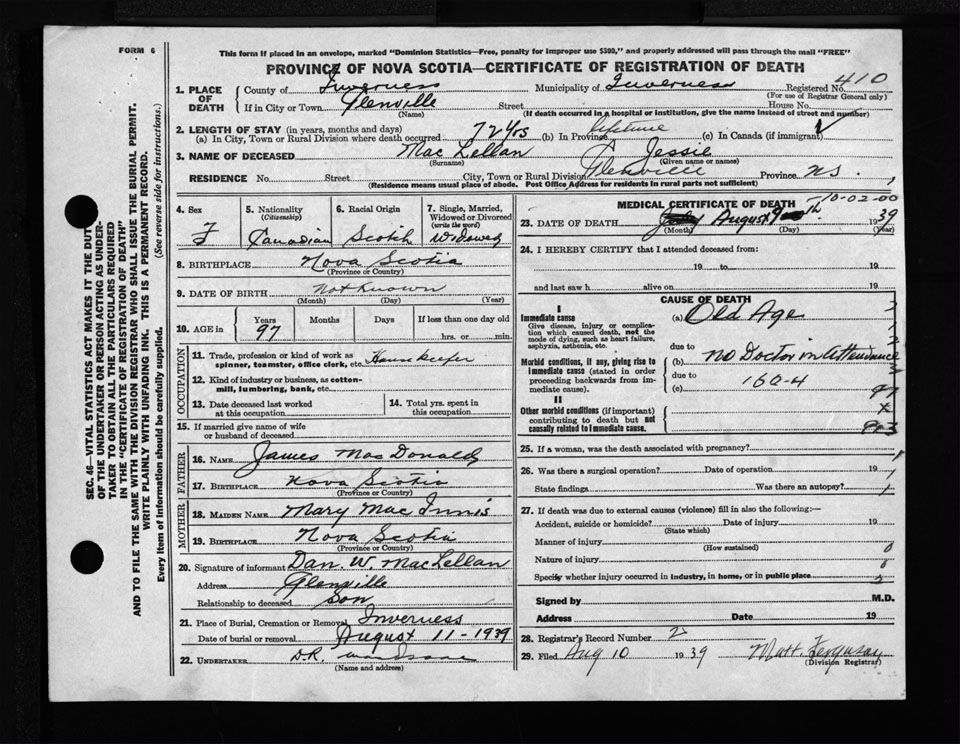 FORM 6
This form if placed in an envelope, marked "Dominion Statistics—Free, penalty for improper use $300," and properly addressed will pass through the mail "FREE"
PROVINCE OF NOVA SCOTIA—CERTIFICATE OF REGISTRATION OF DEATH
SEC. 46—VITAL STATISTICS ACT MAKES IT THE DUTY
OF THE UNDERTAKER OR PERSON ACTING AS UNDER-
TAKER TO OBTAIN ALL THE PARTICULARS REQUIRED
IN THE "CERTIFICATE OF REGISTRATION OF DEATH"
AND TO FILE THE SAME WITH THE DIVISION REGISTRAR WHO SHALL ISSUE THE BURIAL PERMIT.
WRITE PLAINLY WITH UNFADING INK. THIS IS A PERMANENT RECORD.
Every item of Information should be carefully supplied. (See reverse side for instructions.)
1. PLACE OF DEATH
County of Inverness Municipality of Inverness Registered No. 410
(For use of Registrar General only)
If in City or Town Glenville Street House No.
(Name) (If death occurred in a hospital or institution, give the name instead of street and number)
2. LENGTH OF STAY (in years, months and days)
(a) In City, Town or Rural Division where death occurred 72 Yrs (b) In Province lifetime (c) In Canada (if immigrant)
3. NAME OF DECEASED Mac Lellan Jessie
(Surname) (Given name or names)
RESIDENCE No. Street City, Town or Rural Division Glenville Province N.S.
(Residence means usual place of abode. Post Office Address for residents in rural parts not sufficient)
4. Sex F
5. Nationality (Citizenship) Canadian
6. Racial Origin Scotch
7. Single, Married, Widowed or Divorced (write the word) Widowed
8. BIRTHPLACE Nova Scotia
(Province or Country)
9. DATE OF BIRTH Not Known
(Month) (Day) (Year)
10. AGE in Years 97 Months Days If less than one day old
hrs. or min.
OCCUPATION
11. Trade, profession or kind of work as spinner, teamster, office clerk, etc. Housekeeper
12. Kind of industry or business, as cotton-mill, lumbering, bank, etc.
13. Date deceased last worked at this occupation
14. Total yrs. spent in this occupation
15. If married give name of wife or husband of deceased
FATHER
16. NAME James MacDonald
17. BIRTHPLACE Nova Scotia
(Province or Country)
MOTHER
18. MAIDEN NAME Mary Mac Innis
19. BIRTHPLACE Nova Scotia
(Province or Country)
20. Signature of informant Dan. W. MacLellan
Address Glenville
Relationship to deceased Son
21. Place of Burial, Cremation or Removal Inverness
Date of burial or removal August 11-1939
22. UNDERTAKER D.R.
(Name and address)
MEDICAL CERTIFICATE OF DEATH
10-02-00
23. DATE OF DEATH August 9th 1939
(Month) (Day) (Year)
24. I HEREBY CERTIFY that I attended deceased from:
19 to 19
and last saw h alive on 19
CAUSE OF DEATH
I
Immediate cause
Give disease, injury or complication which caused death, not the mode of dying, such as heart failure, asphyxia, asthenia, etc.
(a) Old Age
due to
Morbid conditions, if any, giving rise to immediate cause (stated in order proceeding backwards from immediate cause).
(b) No Doctor in Attendance
due to
(c) 162-4
97
II
Other morbid conditions (if important) contributing to death but not causally related to immediate cause.
X
25. If a woman, was the death associated with pregnancy?
26. Was there a surgical operation? Date of operation 19
State findings Was there an autopsy?
27. If death was due to external causes (violence) fill in also the following:—
Accident, suicide or homicide? Date of injury 19
(State which)
Manner of injury
(How sustained)
Nature of injury
Specify whether injury occurred in industry, in home, or in public place
Signed by M.D.
Address Date 19
28. Registrar's Record Number
29. Filed Aug 10 1939 Matt. Ferguson
(Division Registrar)